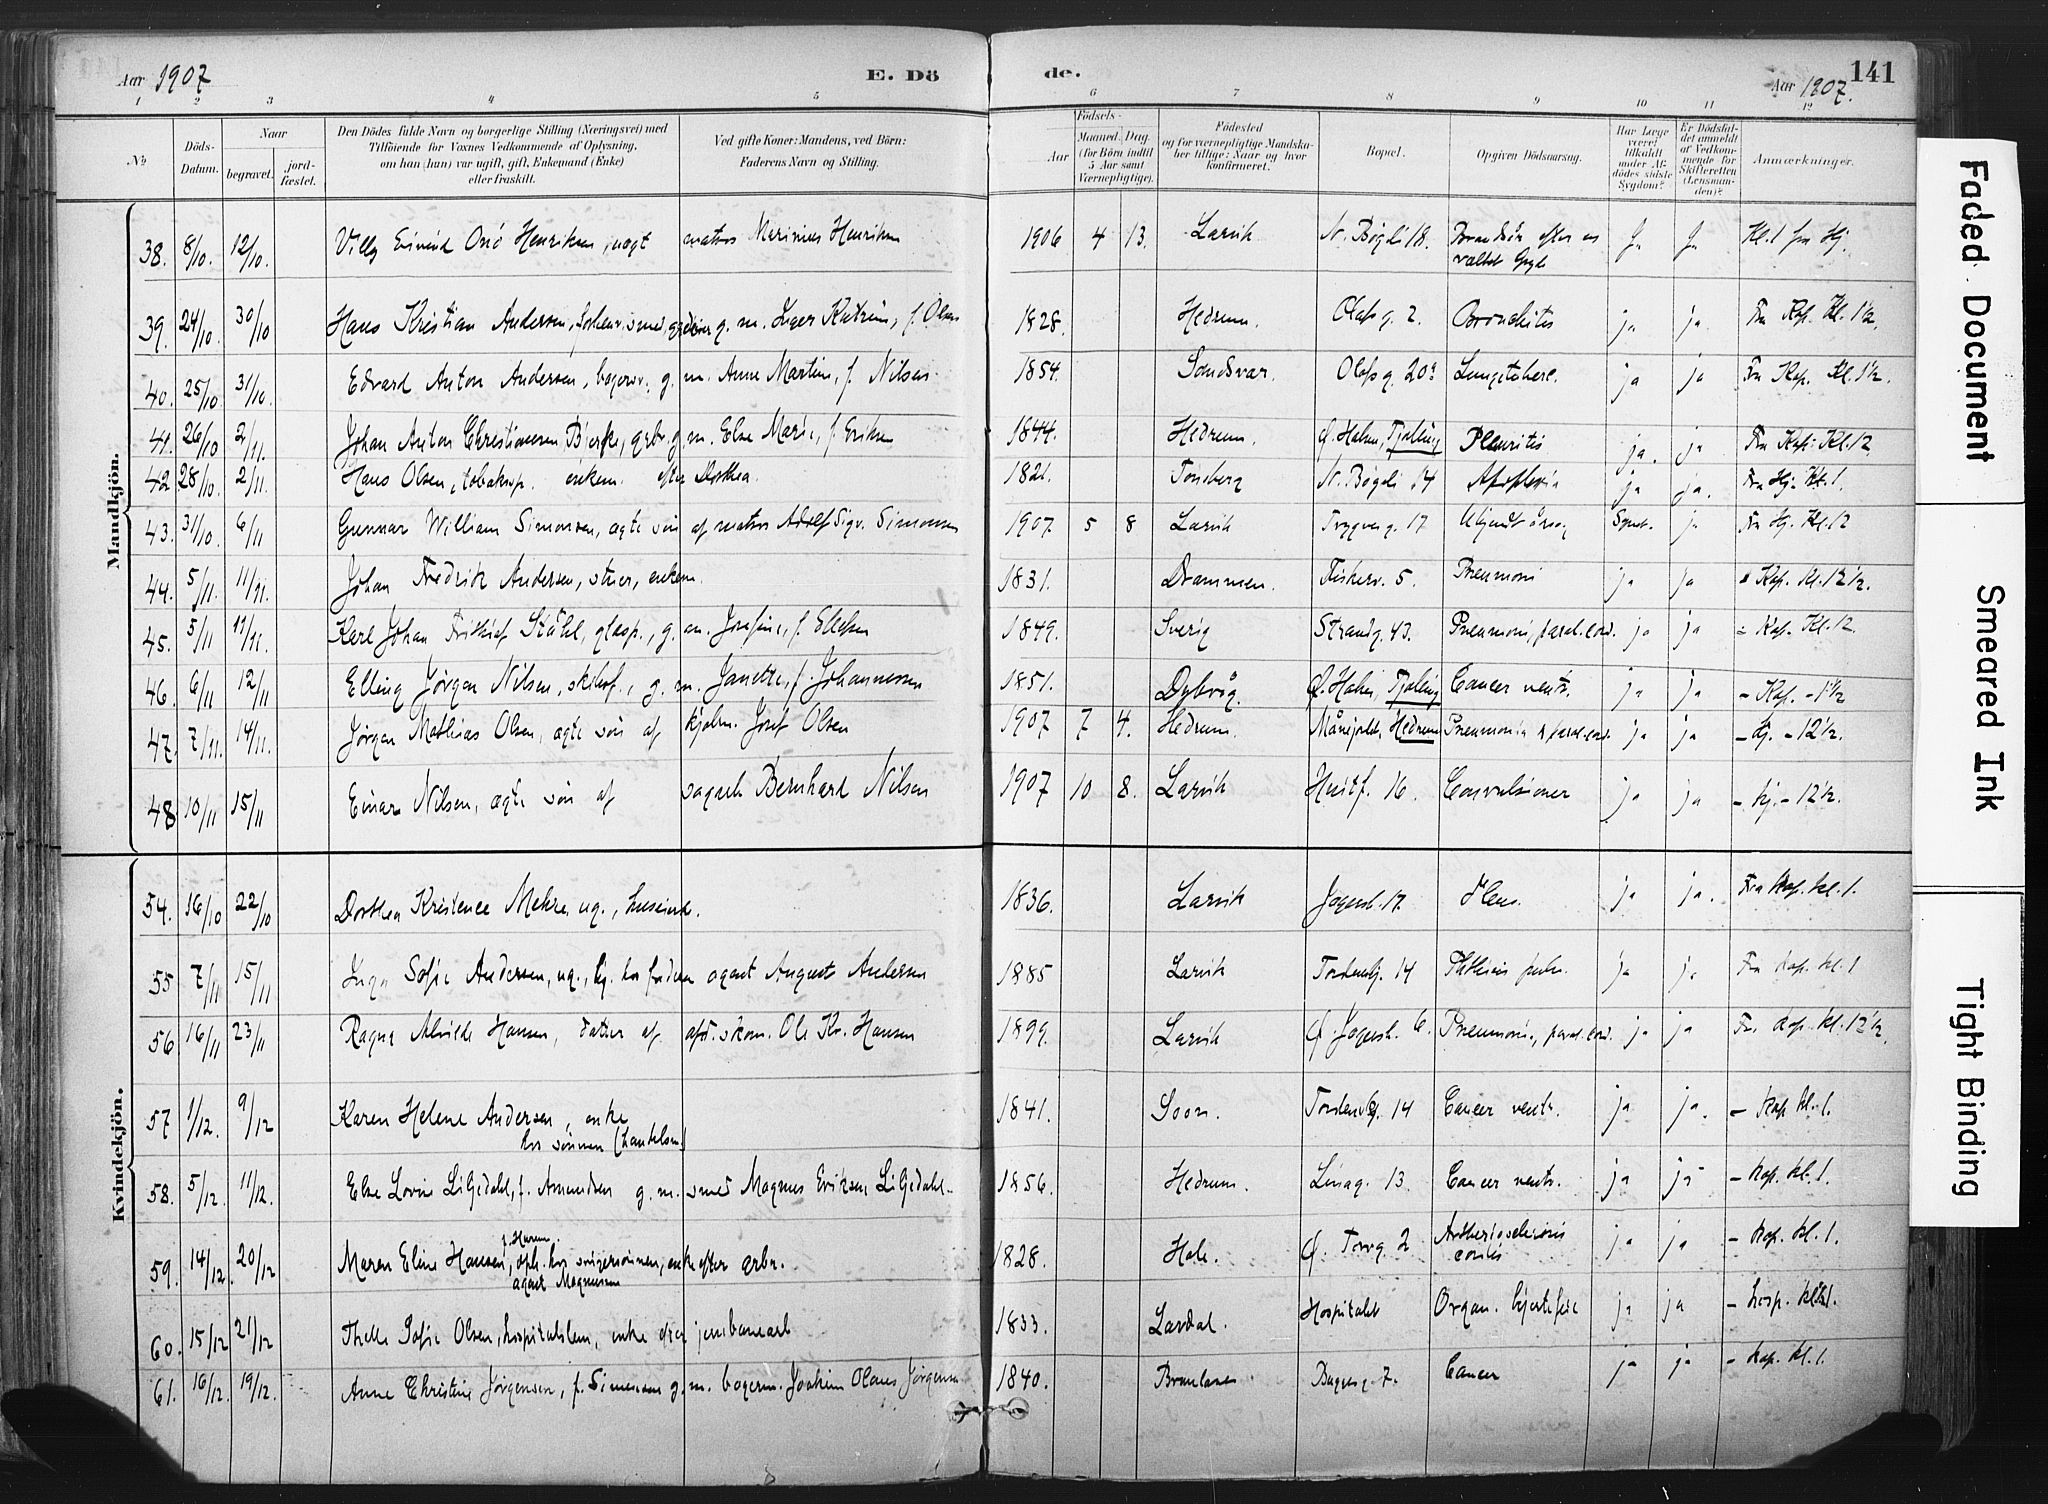 Aar 1907
E. Dö
de.
Aar 1907.
141
1 2 3 4 5 6 7 8 9 10 11 12
No
Döds-Datum.
Naar
begravet.
jord-fæstet.
Den Dödes fulde Navn og borgerlige Stilling (Næringsvei) med
Tilföiende for Voxnes Vedkommende af Oplysning,
om han (hun) var ugift, gift, Enkemand (Enke)
eller fraskilt.
Ved gifte Koner: Mandens, ved Börn:
Faderens Navn og Stilling.
Födsels-
Aar
Maaned.
Dag.
(for Börn indtil
5 Aar samt
Værnepligtige).
Födested
og for værnepligtige Mandska-
ber tillige: Naar og hvor
konfirmeret.
Bopæl.
Opgiven Dödsaarsag.
Har Læge
været
tilkaldt
under Af-
dödes sidste
Sygdom?
Er Dödsfal-
det anmeldt
af Vedkom-
mende for
Skifteretten
(Lensman-
den)?
Anmærkninger.
Mandkjön.
38. 8/10. 12/10. Henriksen, uægt matros Marinius Henriksen 1906 4 13. Larvik N. Bøgeli 18. Kl. 1 fra Hj.
39. 24/10. 30/10 Hans Kristian Andersen, g. m. Inger Katrine, f. Olsen 1828. Hedrum. Olafs g. 2. Bronchitis ja ja. Fra Kap. Kl. 1½.
40. 25/10 31/10. Edvard Anton Andersen, g. m. Anne Martine, f. Nilsen 1854. Sandsvær. Olafs g. 20 ja ja Fra Kap. Kl. 1½.
41. 26/10 2/11. Johan Anton Christiansen Bjerke, g. m. Else Marie, f. Eriksen 1844. Hedrum. Ø. Halsen, Tjølling Pleuritis ja. ja Fra Kap. Kl. 12
42 28/10. 2/11. Hans Olsen, enkem. efter Dorthea. 1821. Tønsberg N. Bøgeli 14 Apoplexia ja ja. Fra Hj. Kl. 1.
43. 31/10. 6/11 Gunnar William Simonsen, ægte søn af matros Adolf Sigv. Simonsen 1907 5 8 Larvik Trygves g. 17 ja Fra Hj. Kl. 12
44. 5/11. 11/11. Johan Fredrik Andersen, enkem. 1831. Drammen. Fiskerv. 5. Pneumoni ja ja Kap. Kl. 12½.
45. 5/11 11/11. Karl Johan Frithiof Ståhl, glasp., g. m. Josefine, f. Ellefsen 1849. Sverig Strandg. 43. Pneumoni, paral. cord. ja ja Kap. Kl. 12.
46. 6/11 12/11 Elling Jørgen Nilsen, g. m. Janette, f. Johannesen 1851. Dybvåg. Ø. Halsen, Tjølling Cancer ventr. ja ja - Kap. - 1½
47. 7/11. 14/11. Jørgen Mathias Olsen, ægte søn af Josef Olsen 1907 7 4. Hedrum. Hedrum Pneumonia paral. cord. ja ja - Hj. - 12½.
48 10/11 15/11 Einar Nilsen, ægte søn af Bernhard Nilsen 1907 10 8. Larvik Huitf. 16. Convulsioner ja ja - Hj. - 12½.
Kvindekjön.
54. 16/10 22/10 Dorthea Kristence ug., 1836. Larvik Jegersb. 17. Ileus. ja ja. Fra Kap. kl. 1.
55 7/11 15/11 Inga Sofie Andersen, ug., hj. hos faderen agent August Andersen 1885 Larvik Tordenskj. 14 Phthisis pulm. ja ja Fra Kap. kl. 1
56 16/11 23/11 Ragna Alvilde Hansen, datter af afd. skom. Ole Kr. Hansen 1899. Larvik Ø. Jegersb. 6. Pneumoni, paral. cord. ja ja Fra Kap. kl. 12½.
57 1/12. 9/12 Karen Helene Andersen, enke
hos sønnen (handelsm.) 1841. Soon. Tordenskj. 14 Cancer ventr. ja ja. - Kap kl. 1.
58. 5/12. 11/12. Else Lovise Liljedahl, f. Amundsen g. m. smed Magnus Eriksen Liljedahl 1856. Hedrum. Linåg. 13. Cancer ventr. ja ja - Kap. kl. 1.
59. 14/12. 20/12 Maren Eline Hansen, f. Hansen, oph. hos svigersønnen, enke efter arbr.
agent Magnussen 1828. Hole. Ø. Torvg. 2 ja ja - Kap. kl. 1.
60. 15/12 21/12 Sofie Olsen, hospitalslem, enke efter jernbanearb 1833. Lardal. Hospitalet Organ. hjertefeil ja ja - hosp. kl. 1.
61. 16/12. 19/12. Anne Christine Jørgensen, f. Simonsen g. m. bogerm. Joakim Olaus Jørgensen 1840. Brunlanes 7. Cancer ja ja - Kap. kl. 1.
Faded Document
Smeared Ink
Tight Binding